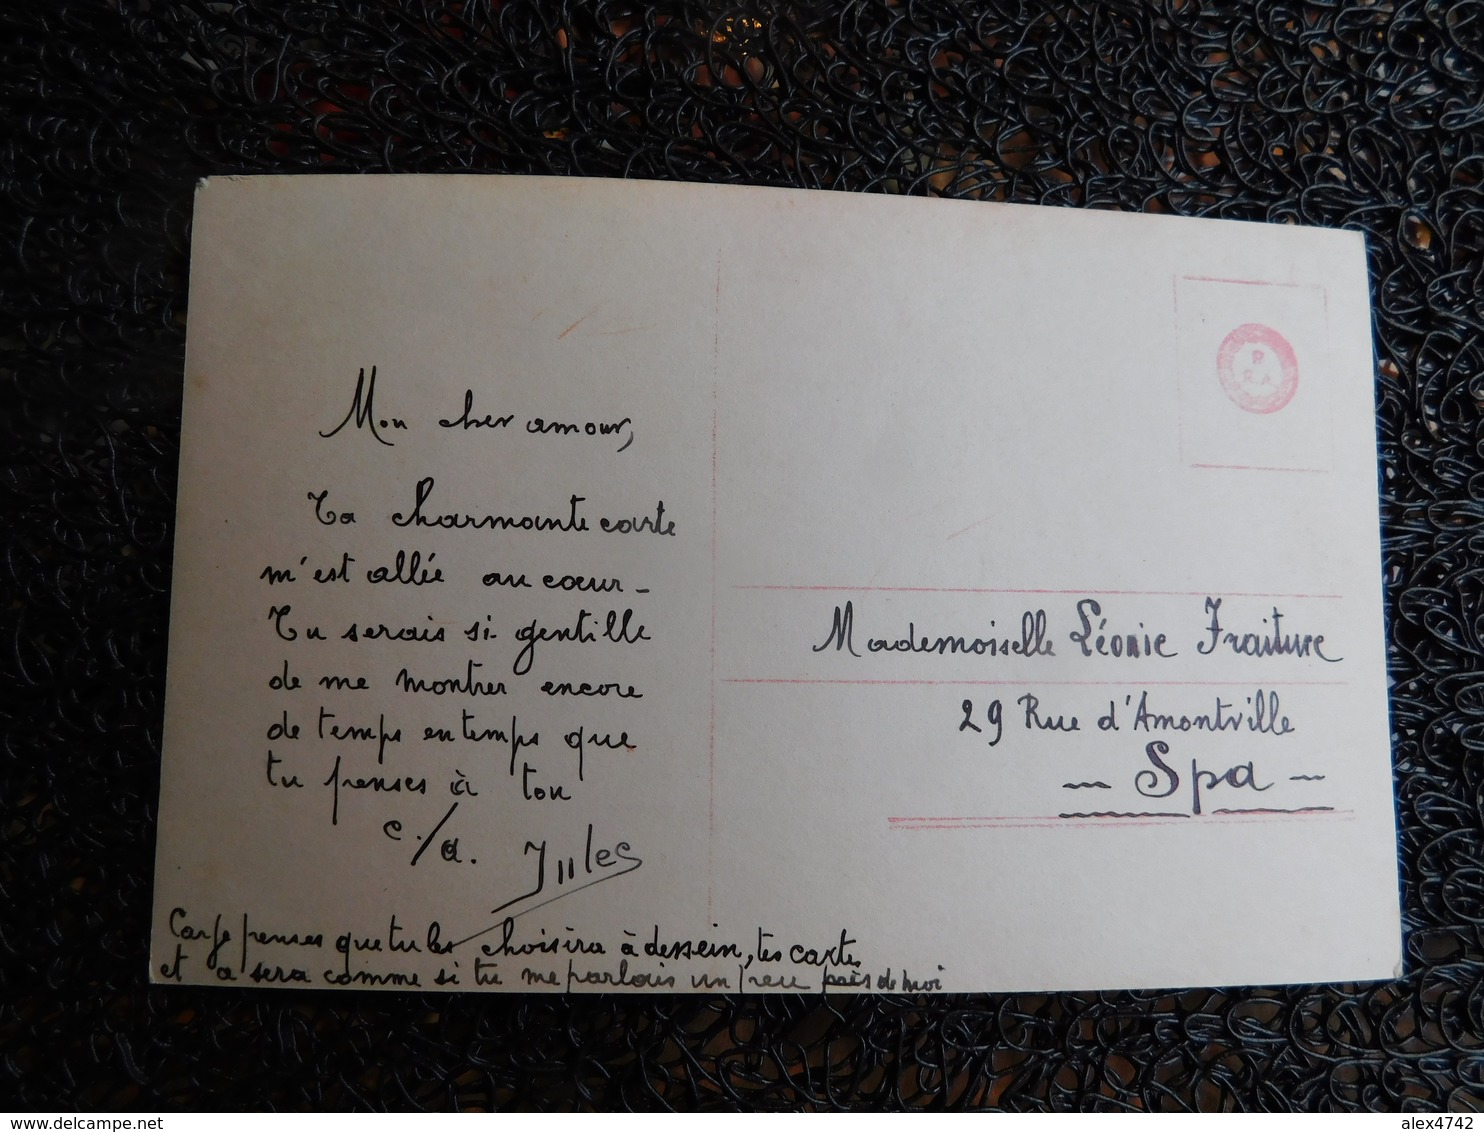 Mon cher amour,
Ta charmante carte
m'est allée au cœur -
Tu serais si gentille
de me montrer encore
de temps en temps que
tu penses à ton
c./a. Jules
Car je penses que tu les choisira à dessein, tes cartes
et a sera comme si tu me parlais un peu près de moi
P
R.A
Mademoiselle Léonie Fraiture
29 Rue d'Amontville
- Spa -
alex4742